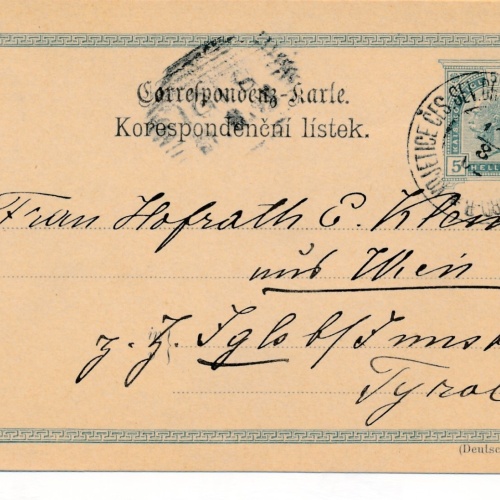 Correspondenz-Karte.
Korespondenční lístek.
5 HELLE
JETICE ČES. SEV. DR
Frau Hofrath E. Klem
aus Wien
z. Z. Igls b/Innsb
Tyrol
(Deutsc